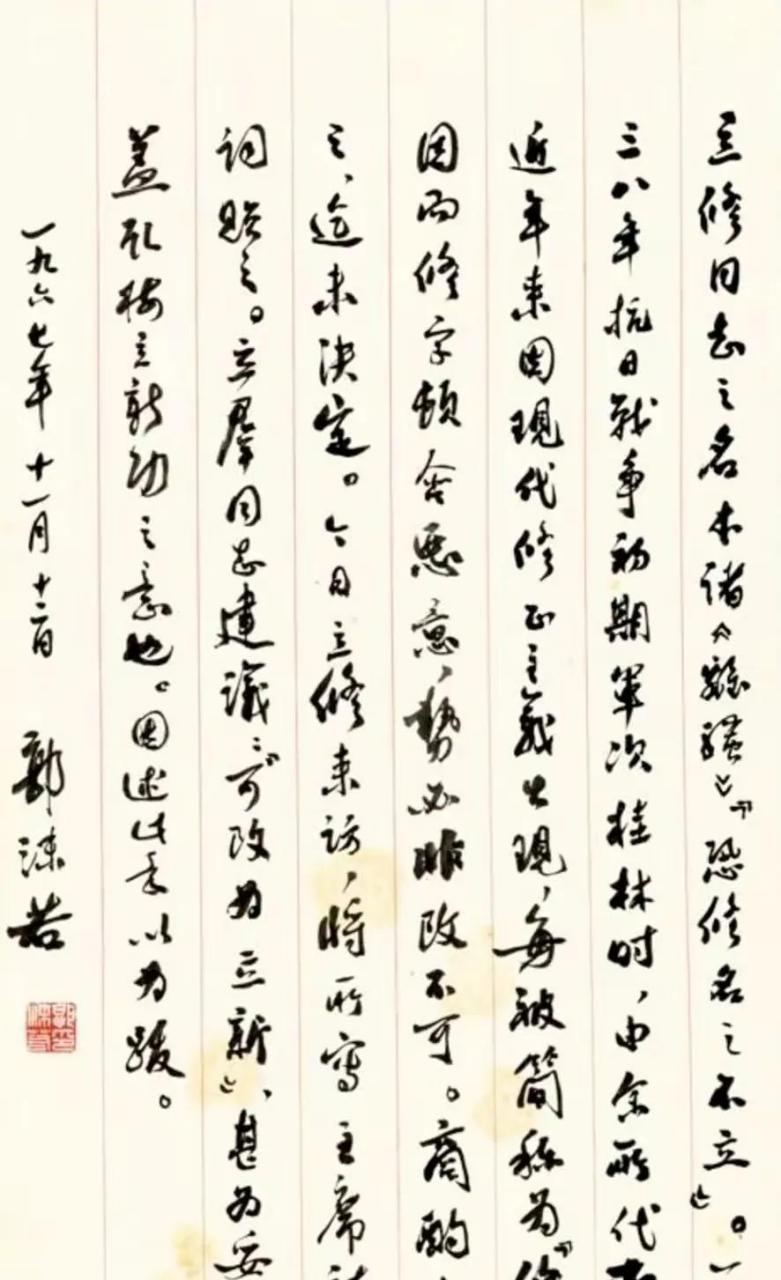 立修同志之名本诸《离骚》『恐修名之不立』。一
三八年抗日战争初期军次桂林时，由余所代
近年来因现代修正主义出现，每被简称为『修
因而修字颇含恶意，势必非改不可。商酌
之，迄未决定。六日立修来访，将所写主席
词贻之。立群同志建议：『可改为立新』，甚为妥
盖取接立新功之意也。因述此事以为跋。
一九六七年十一月十二日 郭沫若
郭沫若